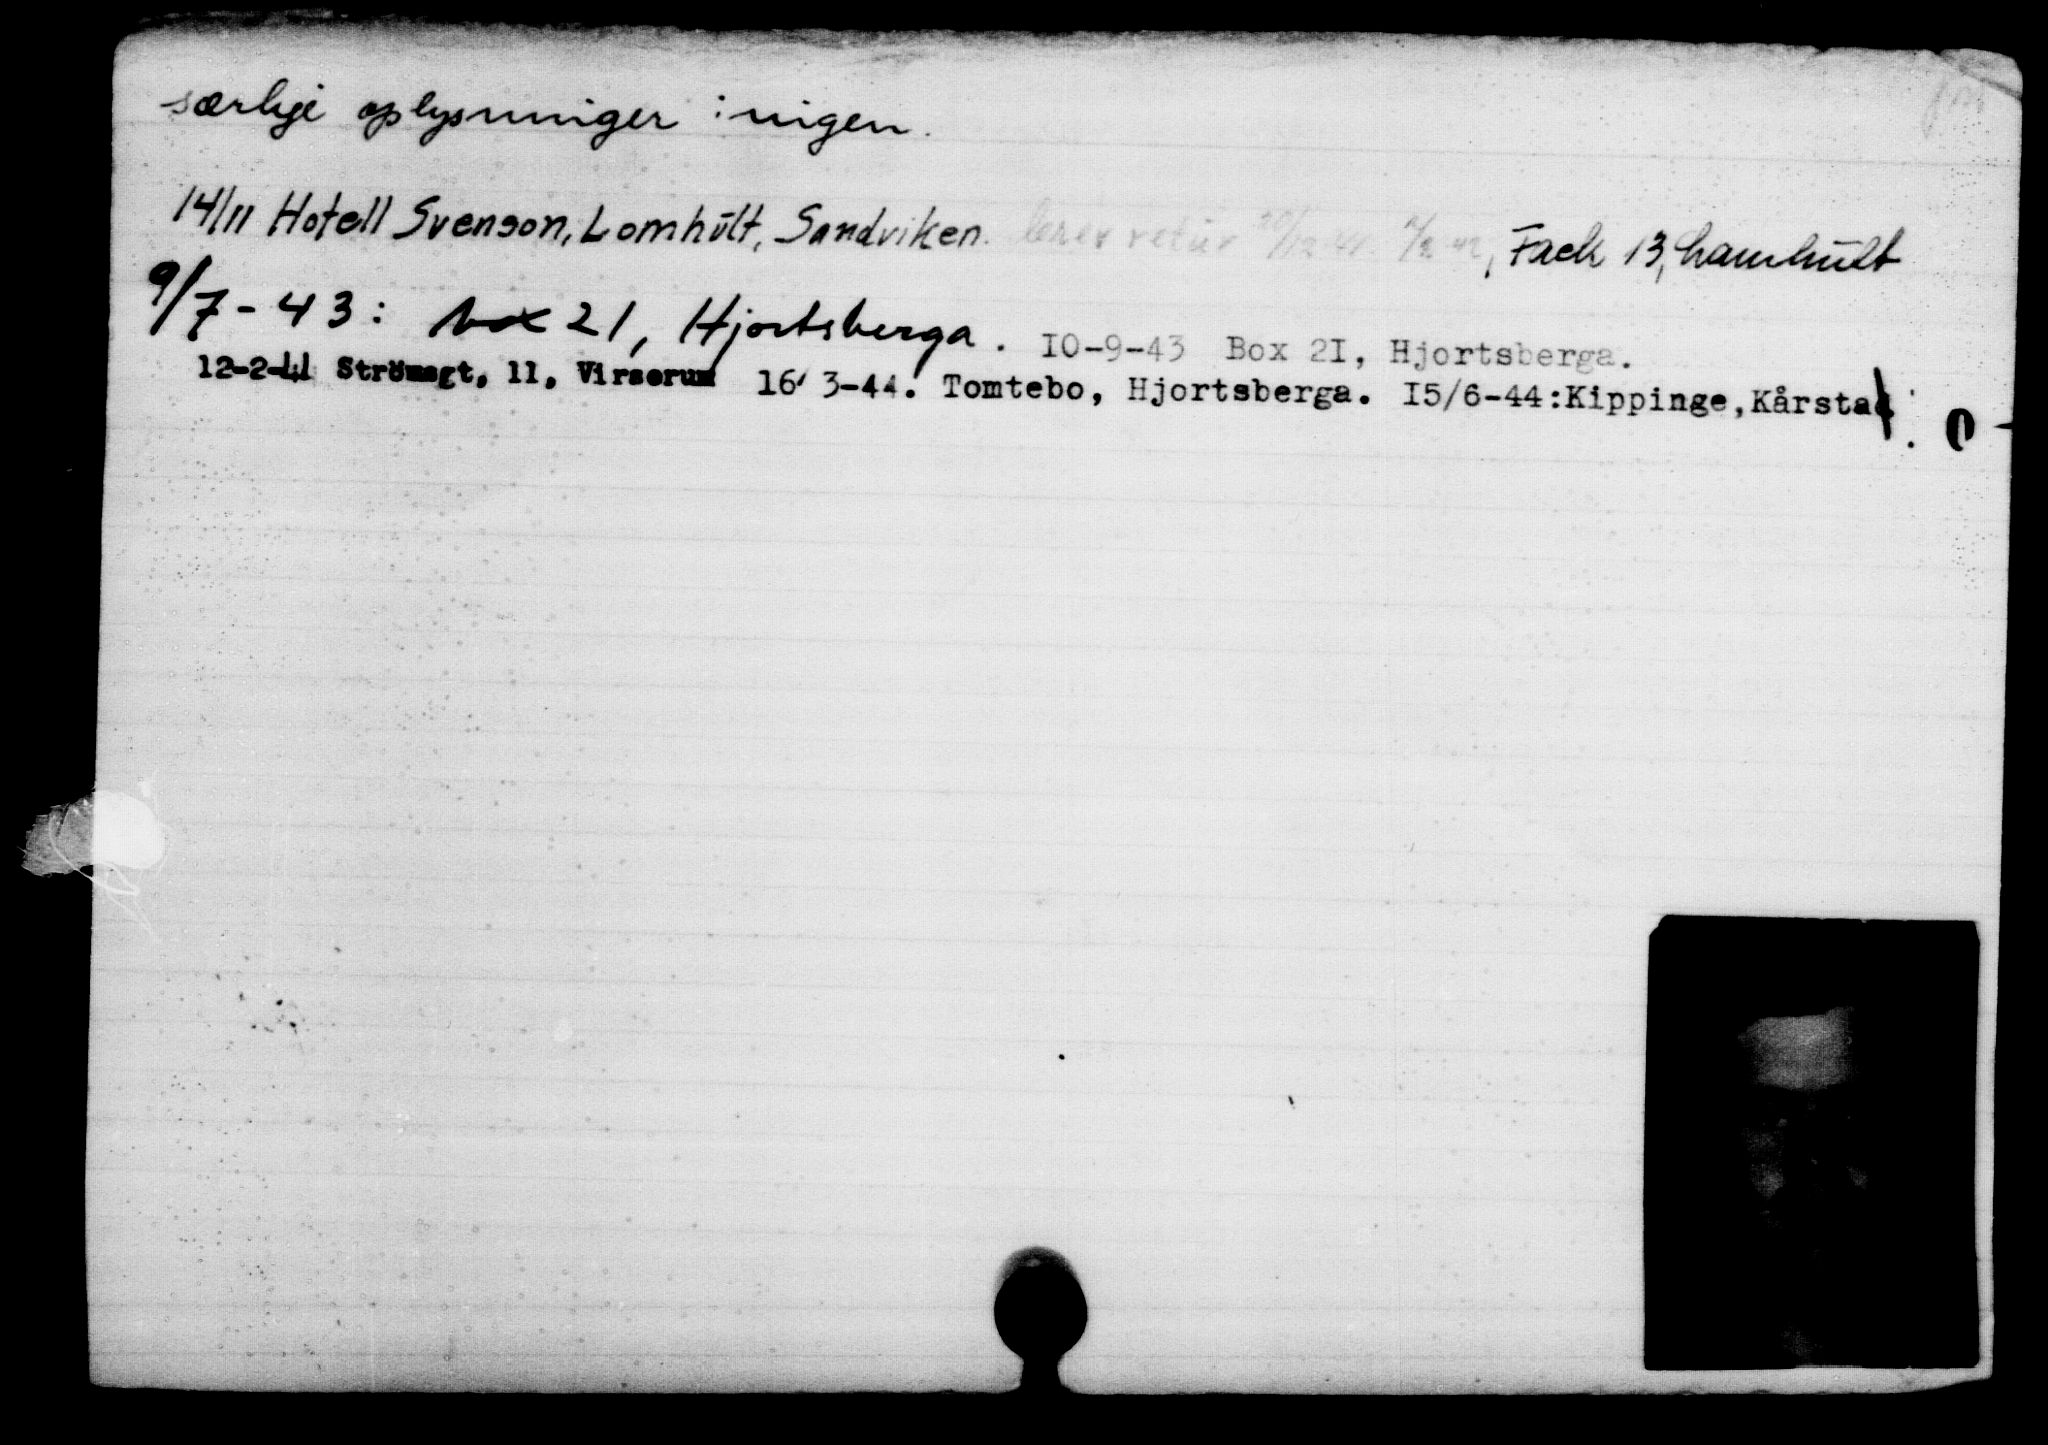 særlige oplysninger : ingen.
14/11 Hotell Svenson, Lomhult, Sandviken. brev retur 4/2 42, Fack 13, Lamhult
9/7-43: box 21, Hjortsberga. 10-9-43 Box 21, Hjortsberga.
12-2-44 Strömsgt. 11, Virserum 16/3-44. Tomtebo, Hjortsberga. 15/6-44:Kippinge,Kårstad.